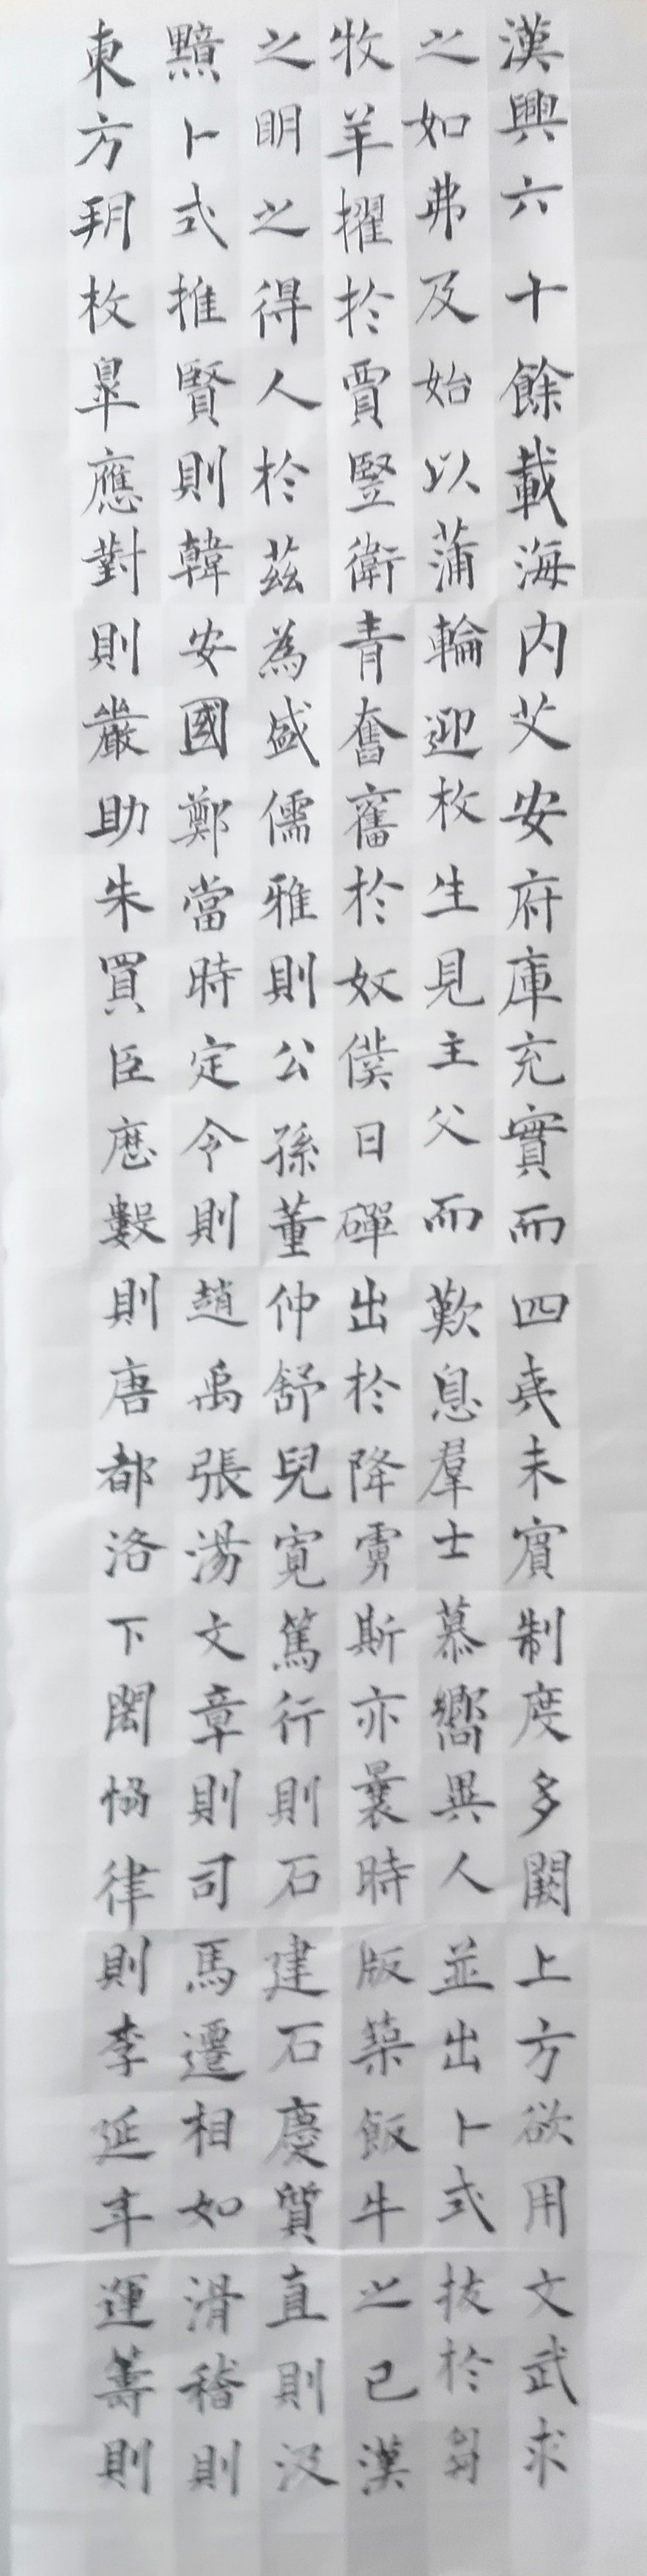 漢興六十餘載海內艾安府庫充實而四夷未賓制度多闕上方欲用文武求
之如弗及始以蒲輪迎枚生見主父而歎息羣士慕嚮異人並出卜式拔於芻
牧羊擢於賈豎衛青奮舊於奴僕日磾出於降虜斯亦曩時版築飯牛之已漢
之明之得人於茲為盛儒雅則公孫董仲舒兒寬篤行則石建石慶質直則汲
黯卜式推賢則韓安國鄭當時定令則趙禹張湯文章則司馬遷相如滑稽則
東方朔枚皐應對則嚴助朱買臣歷數則唐都洛下閎協律則李延年運籌則